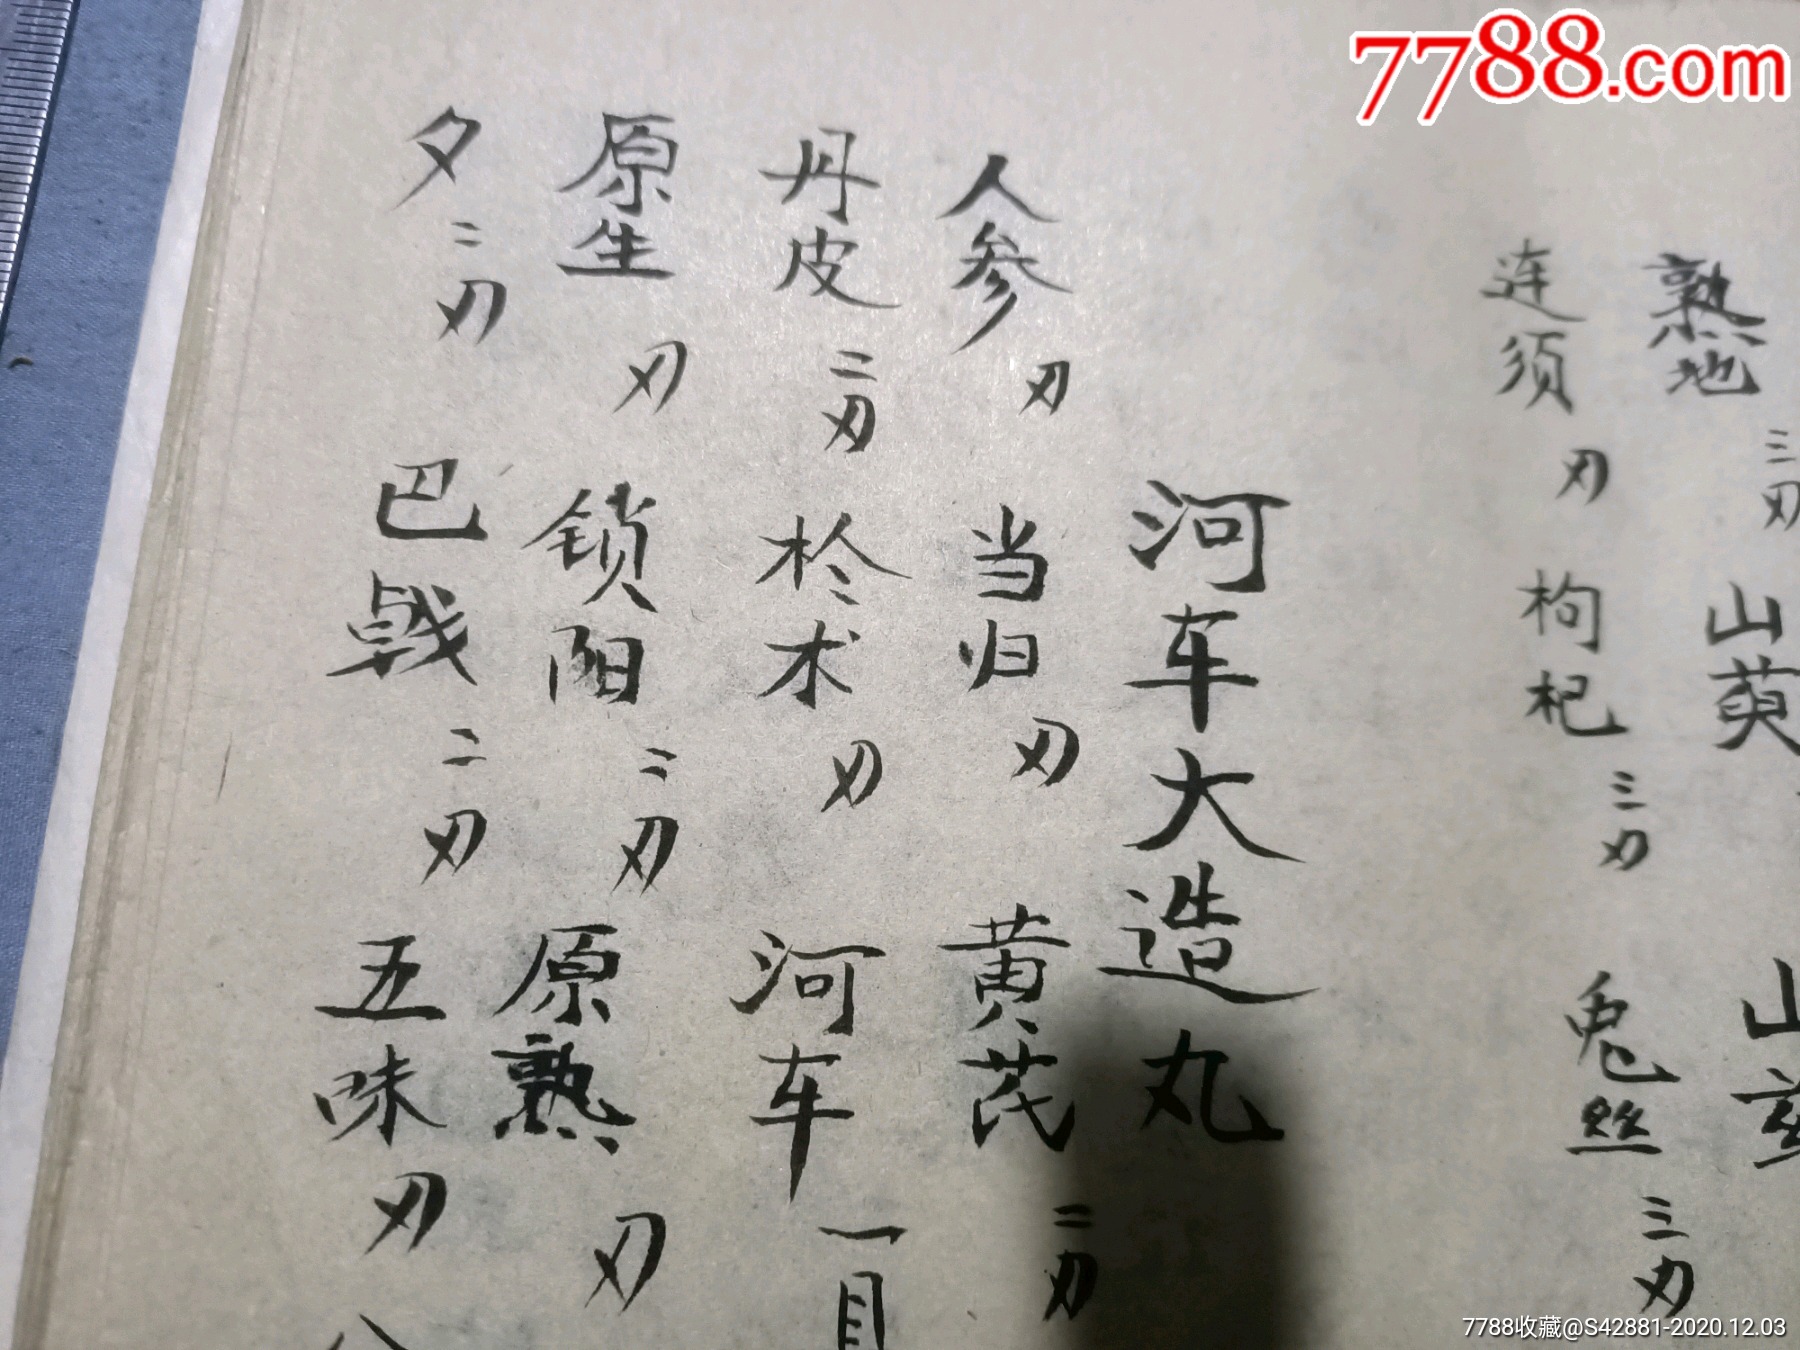 7788.com
熟地 三刃 山萸 山
连须 刃 枸杞 三刃 兔丝 三刃
河车大造丸
人参 刃 当归 刃 黄芪 二刃
丹皮 二刃 柃术 刃 河车 一
原生 刃 锁阳 二刃 原熟 刃
夕 二刃 巴戟 二刃 五味 刃
7788收藏@S42881-2020.12.03